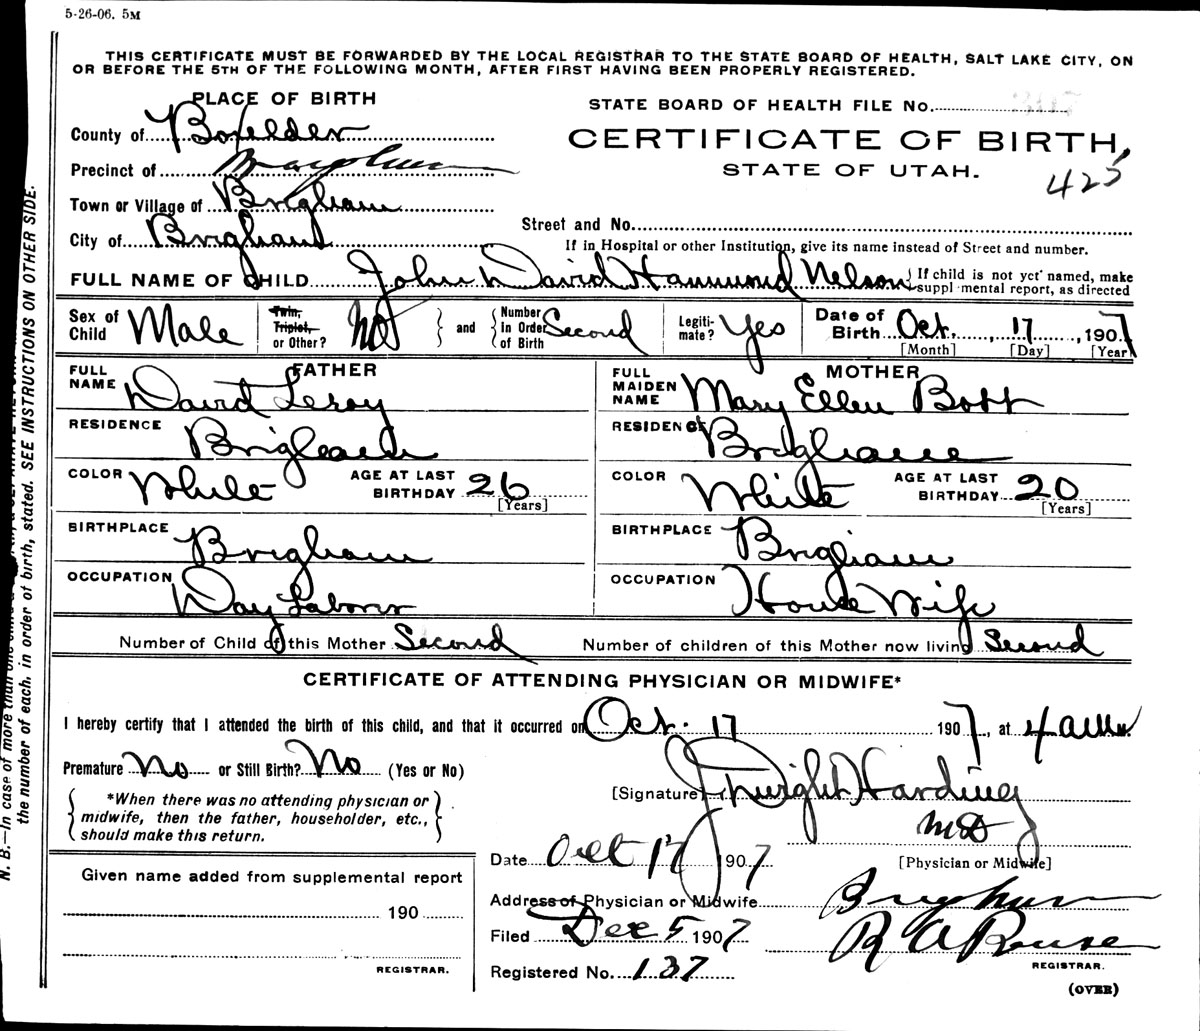 5-26-06. 5M
THIS CERTIFICATE MUST BE FORWARDED BY THE LOCAL REGISTRAR TO THE STATE BOARD OF HEALTH, SALT LAKE CITY, ON
OR BEFORE THE 5TH OF THE FOLLOWING MONTH, AFTER FIRST HAVING BEEN PROPERLY REGISTERED.
PLACE OF BIRTH
STATE BOARD OF HEALTH FILE No.
County of Boxelder
CERTIFICATE OF BIRTH,
Precinct of Brigham
STATE OF UTAH.
425
Town or Village of Brigham
Street and No.
City of Brigham
If in Hospital or other Institution, give its name instead of Street and number.
FULL NAME OF CHILD John David Hammond Nelson { If child is not yet named, make
supplemental report, as directed
Sex of Child Male Twin, Triplet, or Other? Not } and { Number in Order of Birth Second Legiti-mate? Yes Date of Birth Oct. 17, 1907
[Month] [Day] [Year]
FATHER
FULL NAME David Leroy
RESIDENCE Brigham
COLOR White AGE AT LAST BIRTHDAY 26
[Years]
BIRTHPLACE Brigham
OCCUPATION Day Labor
MOTHER
FULL MAIDEN NAME Mary Ellen Bott
RESIDENCE Brigham
COLOR White AGE AT LAST BIRTHDAY 20
[Years]
BIRTHPLACE Brigham
OCCUPATION House Wife
Number of Child of this Mother Second Number of children of this Mother now living Second
CERTIFICATE OF ATTENDING PHYSICIAN OR MIDWIFE*
I hereby certify that I attended the birth of this child, and that it occurred on Oct. 17 1907, at 4 a.m.
Premature No or Still Birth? No (Yes or No)
*When there was no attending physician or
midwife, then the father, householder, etc.,
should make this return.
[Signature] J Dwight Harding
MD
Date Oct 17 1907 [Physician or Midwife]
Given name added from supplemental report
190
REGISTRAR.
Address of Physician or Midwife Brigham
Filed Dec 5 1907 R A Rouse
REGISTRAR.
Registered No. 137
(OVER)
N. B.—In case of more than one child
the number of each, in order of birth, stated. SEE INSTRUCTIONS ON OTHER SIDE.